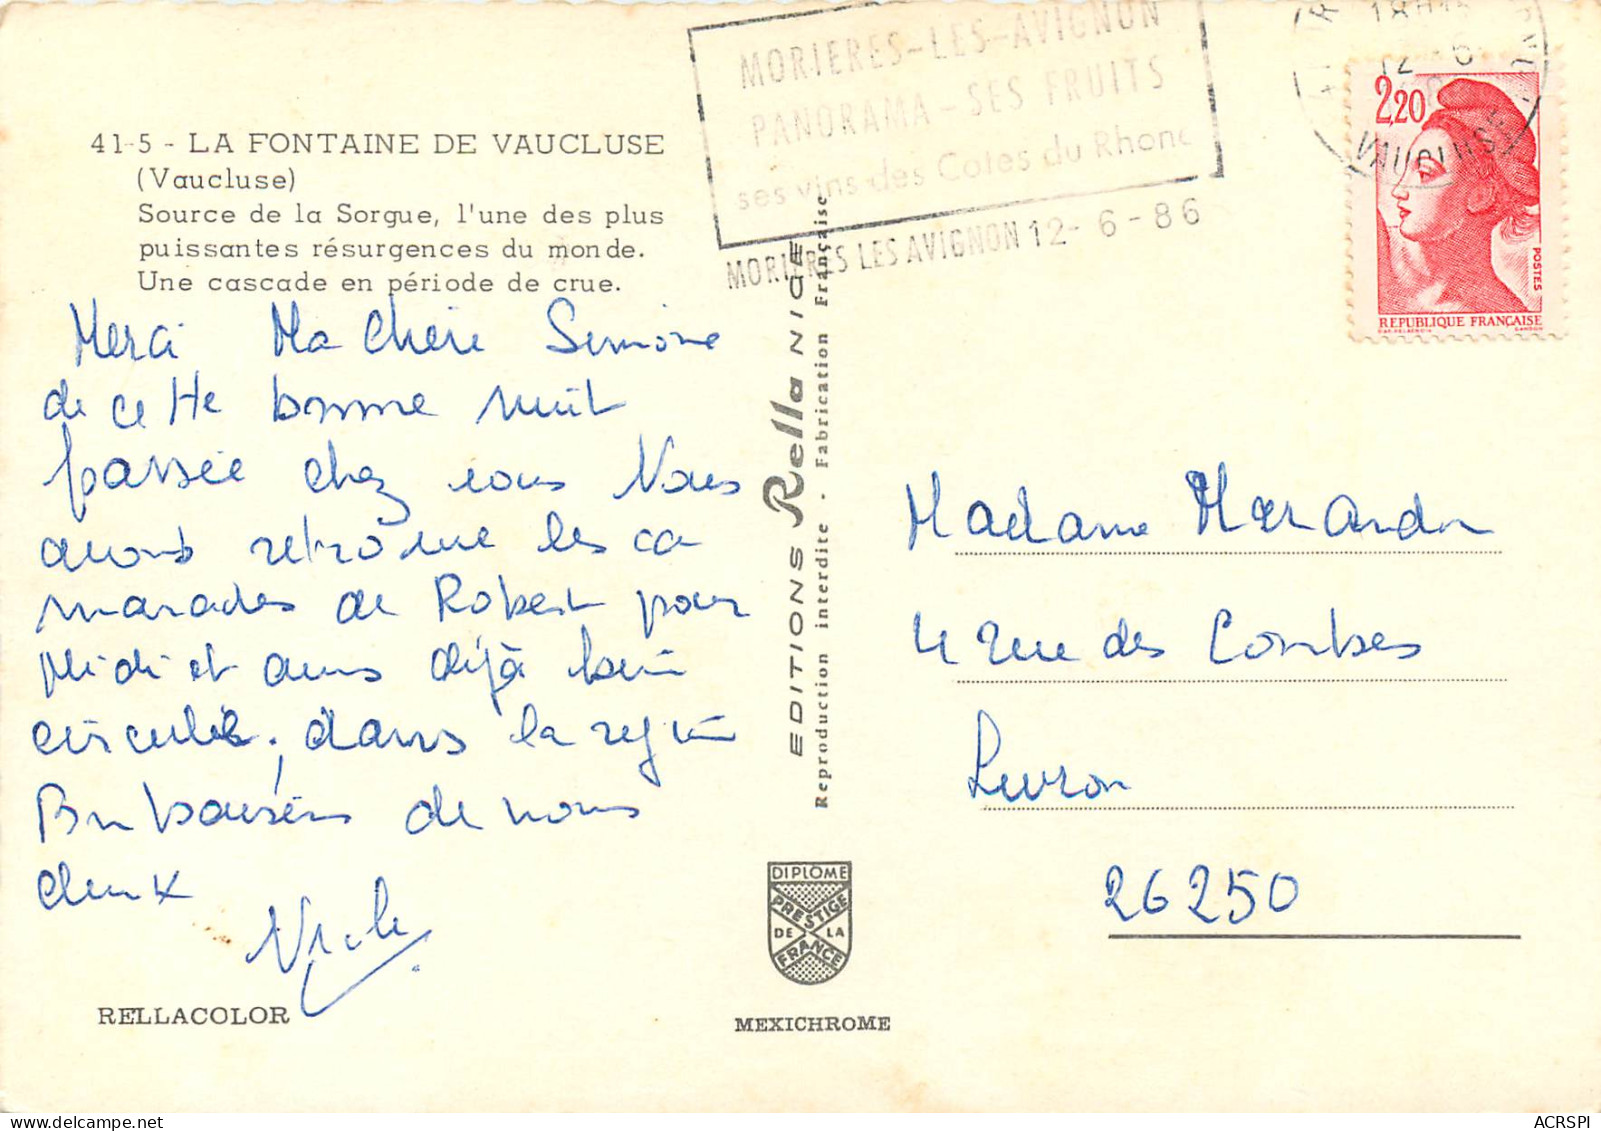 MORIERES-LES-AVIGNON
PANORAMA - SES FRUITS
ses vins des Cotes du Rhone
MORIERES LES AVIGNON 12- 6 - 86
18H
12 - 6
VAUCLUSE
2,20
POSTES
REPUBLIQUE FRANÇAISE
41-5 - LA FONTAINE DE VAUCLUSE
(Vaucluse)
Source de la Sorgue, l'une des plus
puissantes résurgences du monde.
Une cascade en période de crue.
Merci Ma Chère Simone
de cette bonne nuit
passée chez vous Nous
avons retrouvé les ca
marades de Robert pour
Midi et avons déjà bien
circulé, dans la région
Bon baisers de nous
deux
RELLACOLOR
EDITIONS Rella NICE
Reproduction interdite - Fabrication Française
DIPLÔME
PRESTIGE
DE LA
FRANCE
MEXICHROME
Madame Marandon
4 rue des Combes
Livron
26250
ACRSPI